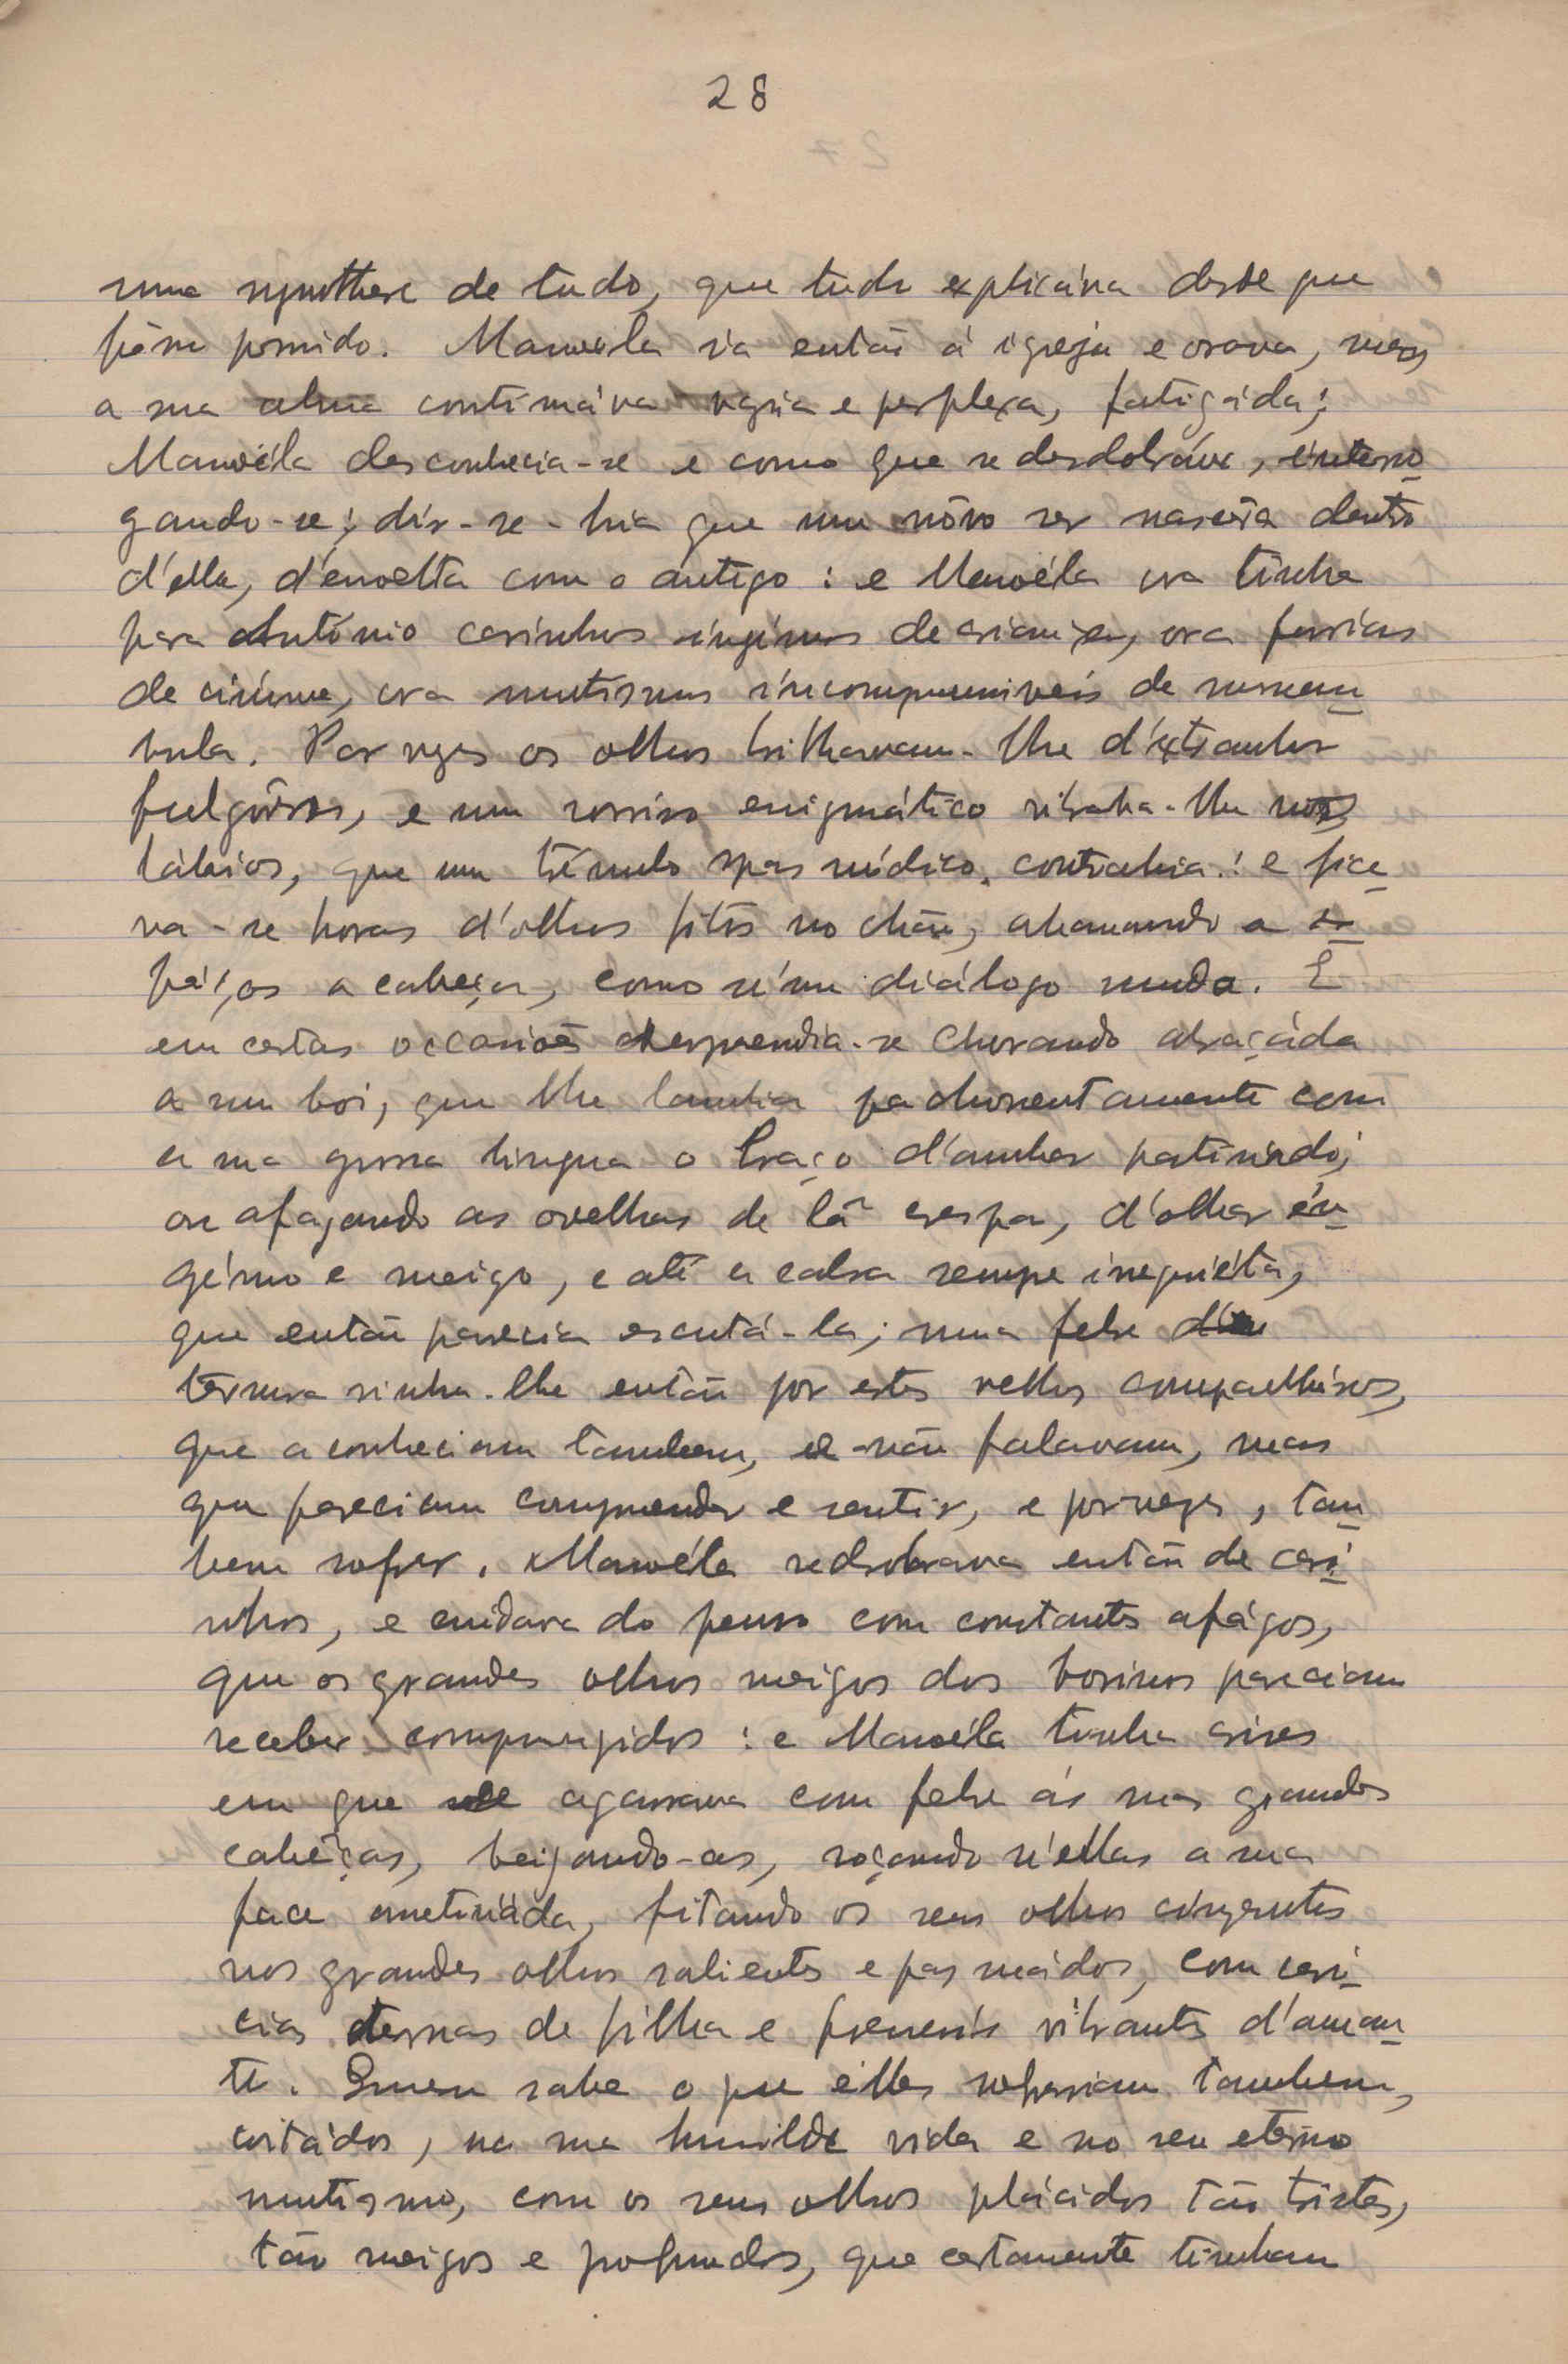 28
uma synthese de tudo, que tudo explicáva desde que
fôra possuido. Manoéla ia então á igreja e orava, mas
a sua alma continuáva vasia e perplexa, fatigáda;
Manoéla desconhecia-se e como que se desdobráva, interro
gando-se; dir-se-hia que um nôvo ser nascêra dentro
d'élla, d'envolta com o antigo: e Manoéla ora tinha
para António carinhos ingénuos de criança, ora furias
de ciúme, ora mutismos incompreensiveis de somnam
bula. Por vezes os olhos brilhavam-lhe d'extranhos
fulgôres, e um sorriso enigmático vibrava-lhe nos
lábios, que um trémulo spasmódico contrahia: e fica
va-se horas d'olhos fitos no chão, abanando a es
páços a cabeça, como n'um diálogo mudo. E
em certas occasiões surprendia-se chorando abraçáda
a um boi, que lhe lambia pachorrentamente com
a sua grossa lingua o braço d'ambar patinádo;
ou afagando as ovelhas de lã crespa, d'olhar in
génuo e meigo, e até a cabra sempre inquiéta,
que então parecia escutá-la; uma febre de
ternura vinha-lhe então por estes velhos companheiros,
que a conheciam tambem, e não falavam, mas
que pareciam comprender e sentir, e por vezes, tam
bem sofrer. Manoéla redobrava então de cari
nhos, e cuidava do penso com constantes afágos,
que os grandes olhos meigos dos bovinos pareciam
receber compungidos: e Manoéla tinha crises
em que se agarrava com febre ás suas grandes
cabêças, beijando-as, roçando n'ellas a sua
face ametináda, fitando os seus olhos cingentes
nos grandes olhos salientes e pasmádos, com carí
cias ternas de filha e frenesís vibrantes d'aman
te. Quem sabe o que élles sofreriam tambem,
coitádos, na sua humilde vida e no seu eterno
mutismo, com os seus olhos plácidos tão tristes,
tão meigos e profundos, que certamente tinham